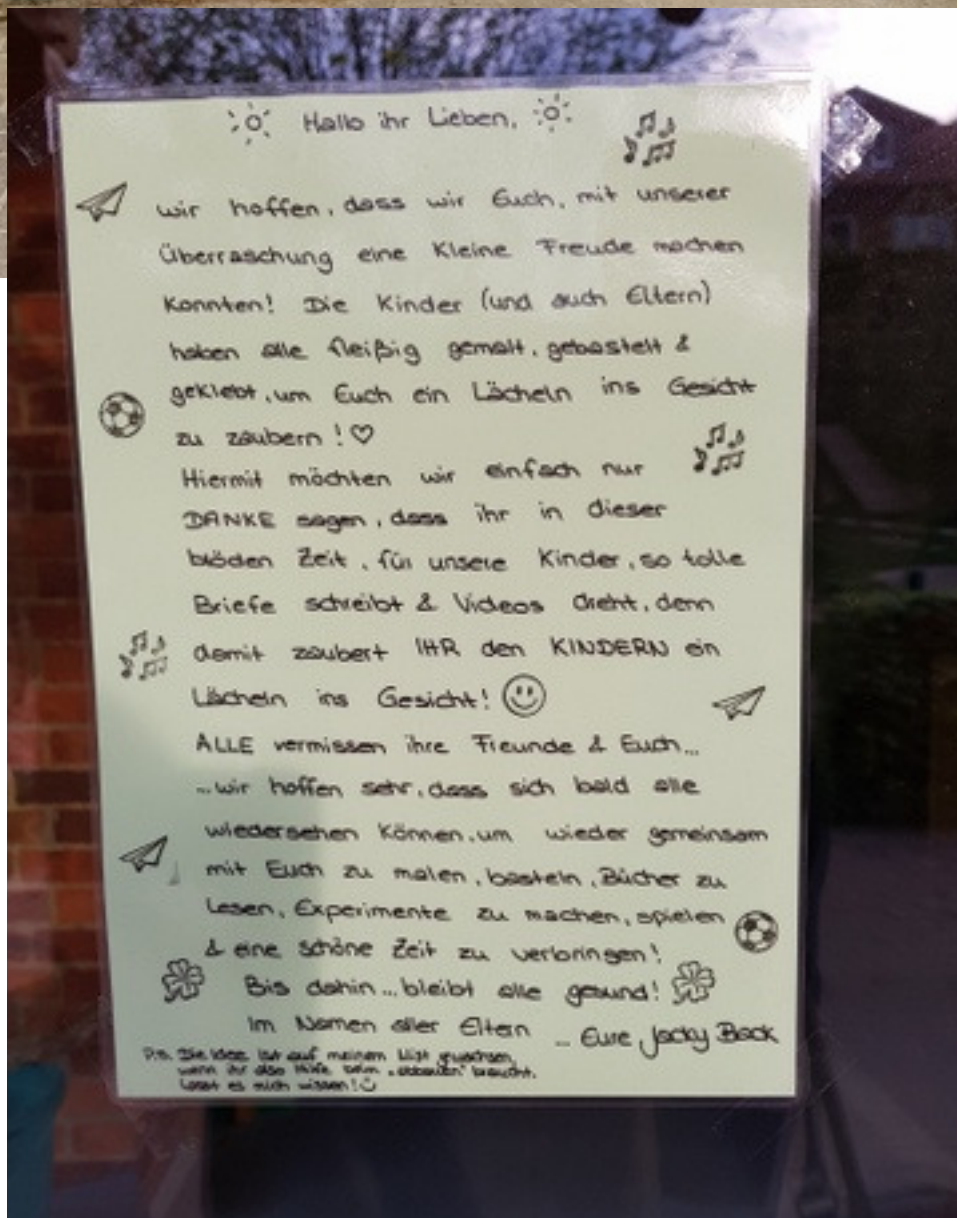 Hallo ihr Lieben,
wir hoffen, dass wir Euch, mit unserer
Überraschung eine kleine Freude machen
konnten! Die Kinder (und auch Eltern)
haben alle fleißig gemalt, gebastelt &
geklebt, um Euch ein Lächeln ins Gesicht
zu zaubern! ♡
Hiermit möchten wir einfach nur
DANKE sagen, dass ihr in dieser
blöden Zeit, für unsere Kinder, so tolle
Briefe schreibt & Videos dreht, denn
damit zaubert IHR den KINDERN ein
Lächeln ins Gesicht! ☺
ALLE vermissen ihre Freunde & Euch...
...wir hoffen sehr, dass sich bald alle
wiedersehen können, um wieder gemeinsam
mit Euch zu malen, basteln, Bücher zu
lesen, Experimente zu machen, spielen
& eine schöne Zeit zu verbringen!
Bis dahin... bleibt alle gesund!
Im Namen aller Eltern ... Eure Jacky Back
P.S. Die Idee ist auf meinem Mist gewachsen,
wenn ihr also Hilfe beim "abbauen" braucht,
lasst es mich wissen! ☺